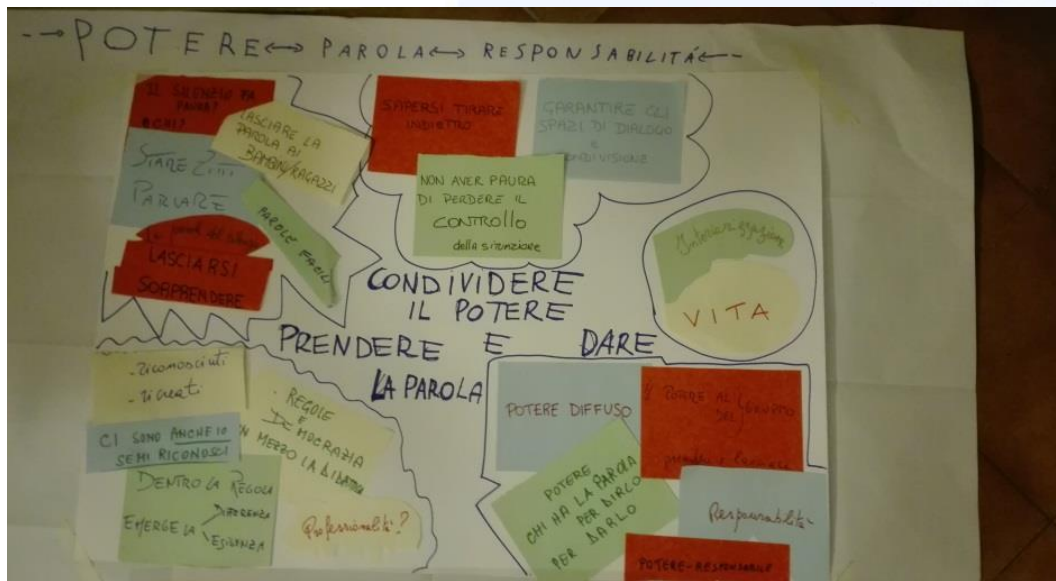 --→ POTERE ↔ PAROLA ↔ RESPONSABILITÁ ←--
IL SILENZIO FA
PAURA?
A CHI?
LASCIARE LA
PAROLA AI
BAMBINI/RAGAZZI
STARE ZITTI
PARLARE
PAROLE FACILI
LASCIARSI
SORPRENDERE
SAPERSI TIRARE
INDIETRO
GARANTIRE GLI
SPAZI DI DIALOGO
E
CONDIVISIONE
NON AVER PAURA
DI PERDERE IL
CONTROLLO
della situazione
Interiorizzazione
VITA
CONDIVIDERE
IL POTERE
PRENDERE E DARE
LA PAROLA
- riconosciuti
- ricreati
CI SONO ANCHE IO
SEMI RICONOSCI
DENTRO LA REGOLA
EMERGE LA
DIFFERENZA
ESIGENZA
- REGOLE
E
DEMOCRAZIA
IN MEZZO LA DIDATTICA
Professionalità?
POTERE DIFFUSO
IL POTERE AL
POTERE
CHI HA LA PAROLA
PER DIRLO
PER DARLO
Responsabilità
POTERE-RESPONSABILE